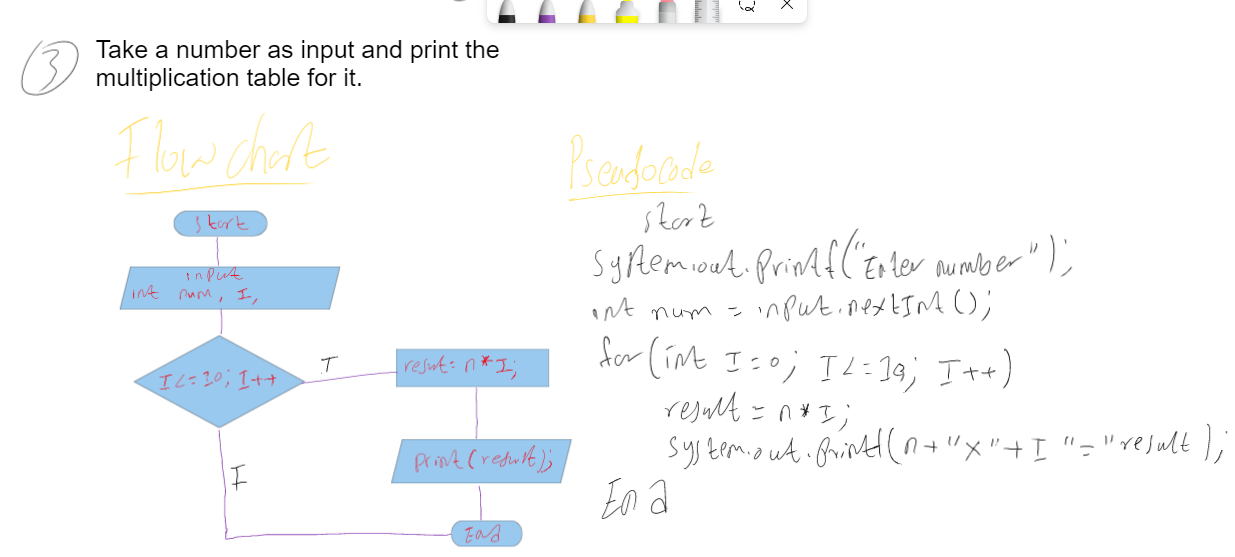 3
Take a number as input and print the
multiplication table for it.
Flow chart
start
input
int num, I,
I<=10; I++
T
result= n*I;
print(result);
I
End
Pseudocode
start
System.out.printf("Enter number");
int num = input.nextInt();
for(int I=0; I<=10; I++)
result = n*I;
system.out.printf(n+"x"+I "="result);
End